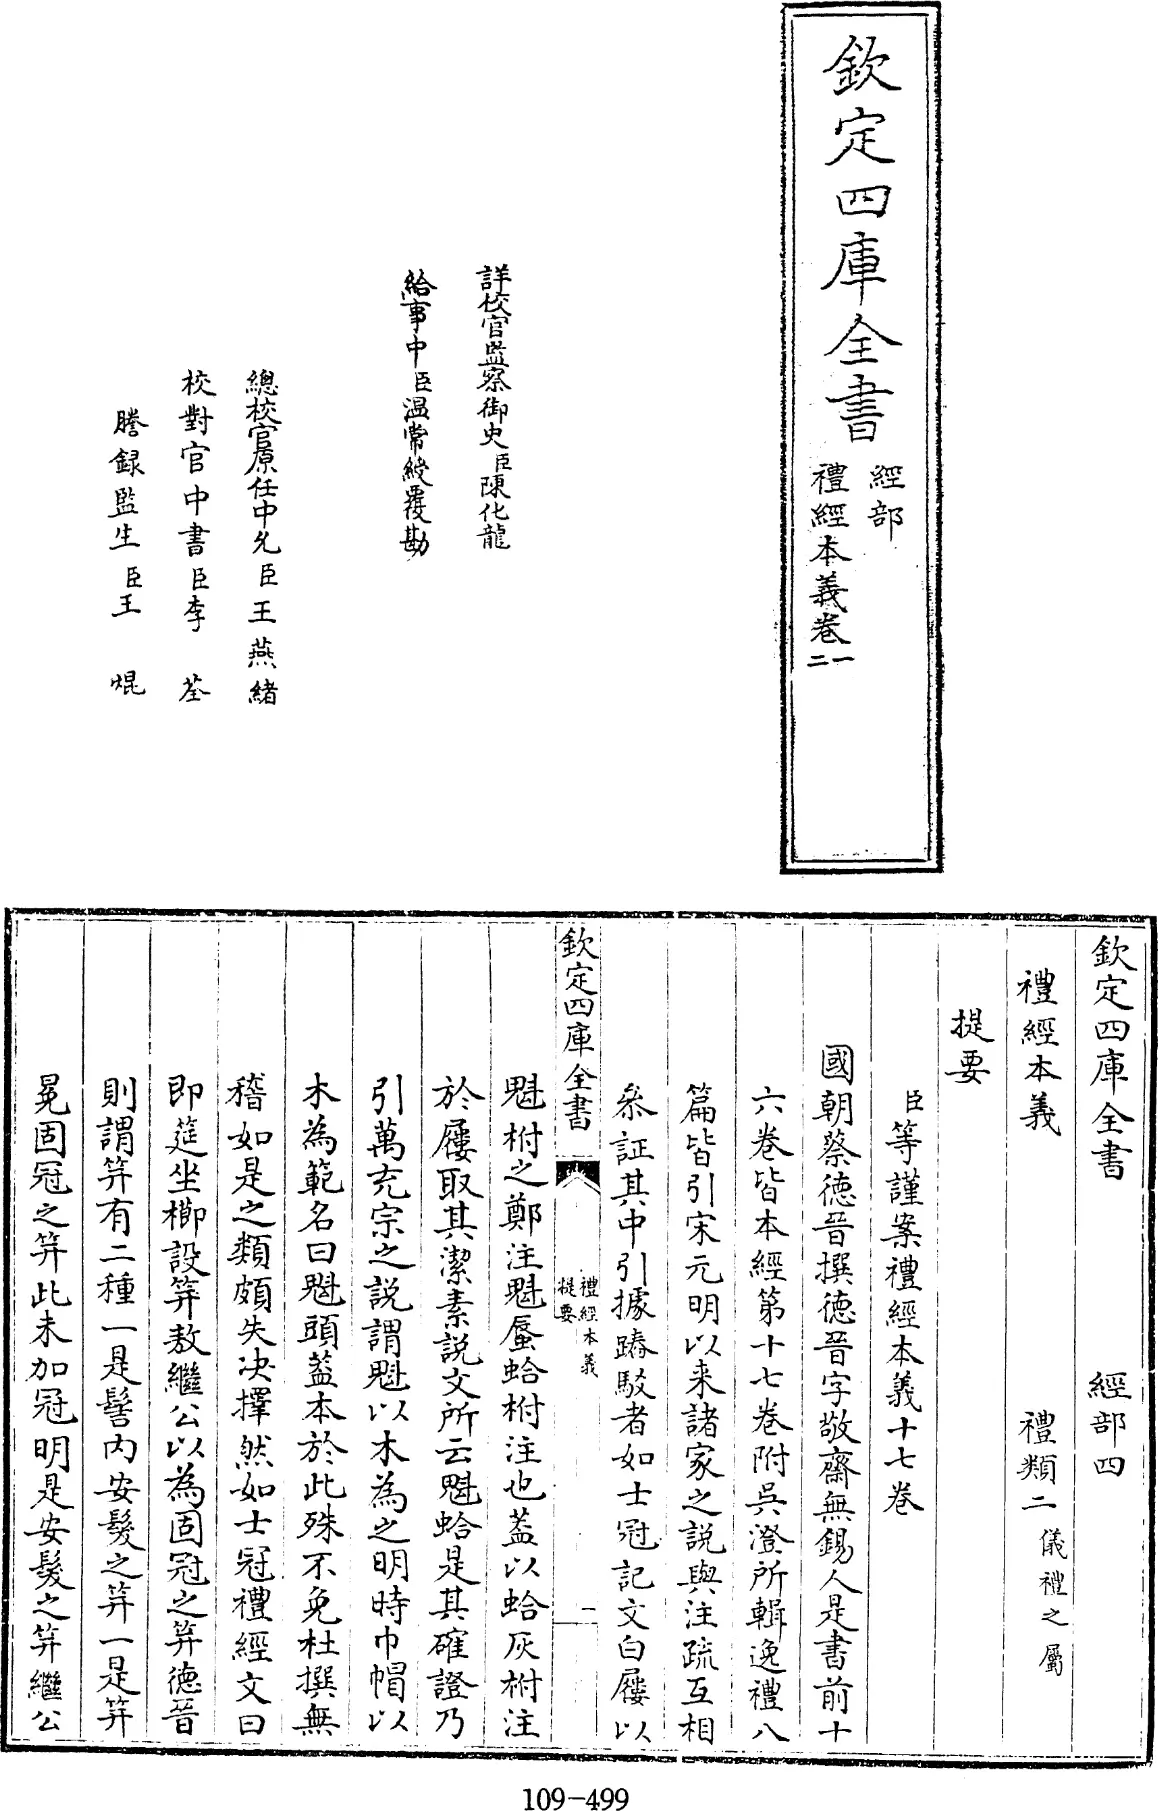 欽定四庫全書
經部
禮經本義卷一
二
詳校官監察御史臣陳化龍
給事中臣温常綬覆勘
總校官原任中允臣王燕緒
校對官中書臣李荃
謄録監生臣王焜
欽定四庫全書 經部四
禮經本義 禮類二儀禮之屬
提要
臣等謹案禮經本義十七卷
國朝蔡德晉撰德晉字敬齋無錫人是書前十
六卷皆本經第十七卷附吳澄所輯逸禮八
篇皆引宋元明以来諸家之説與注疏互相
叅証其中引據踳駁者如士冠記文白屨以
欽定四庫全書
禮經本義
提要
一
魁柎之鄭注魁蜃蛤柎注也葢以蛤灰柎注
於屨取其潔素説文所云魁蛤是其確證乃
引萬充宗之説謂魁以木為之明時巾帽以
木為範名曰魁頭葢本於此殊不免杜撰無
稽如是之類頗失决擇然如士冠禮經文曰
即筵坐櫛設笄敖繼公以為固冠之笄德晉
則謂笄有二種一是髻内安髮之笄一是笄
冕固冠之笄此未加冠明是安髮之笄繼公
109-499